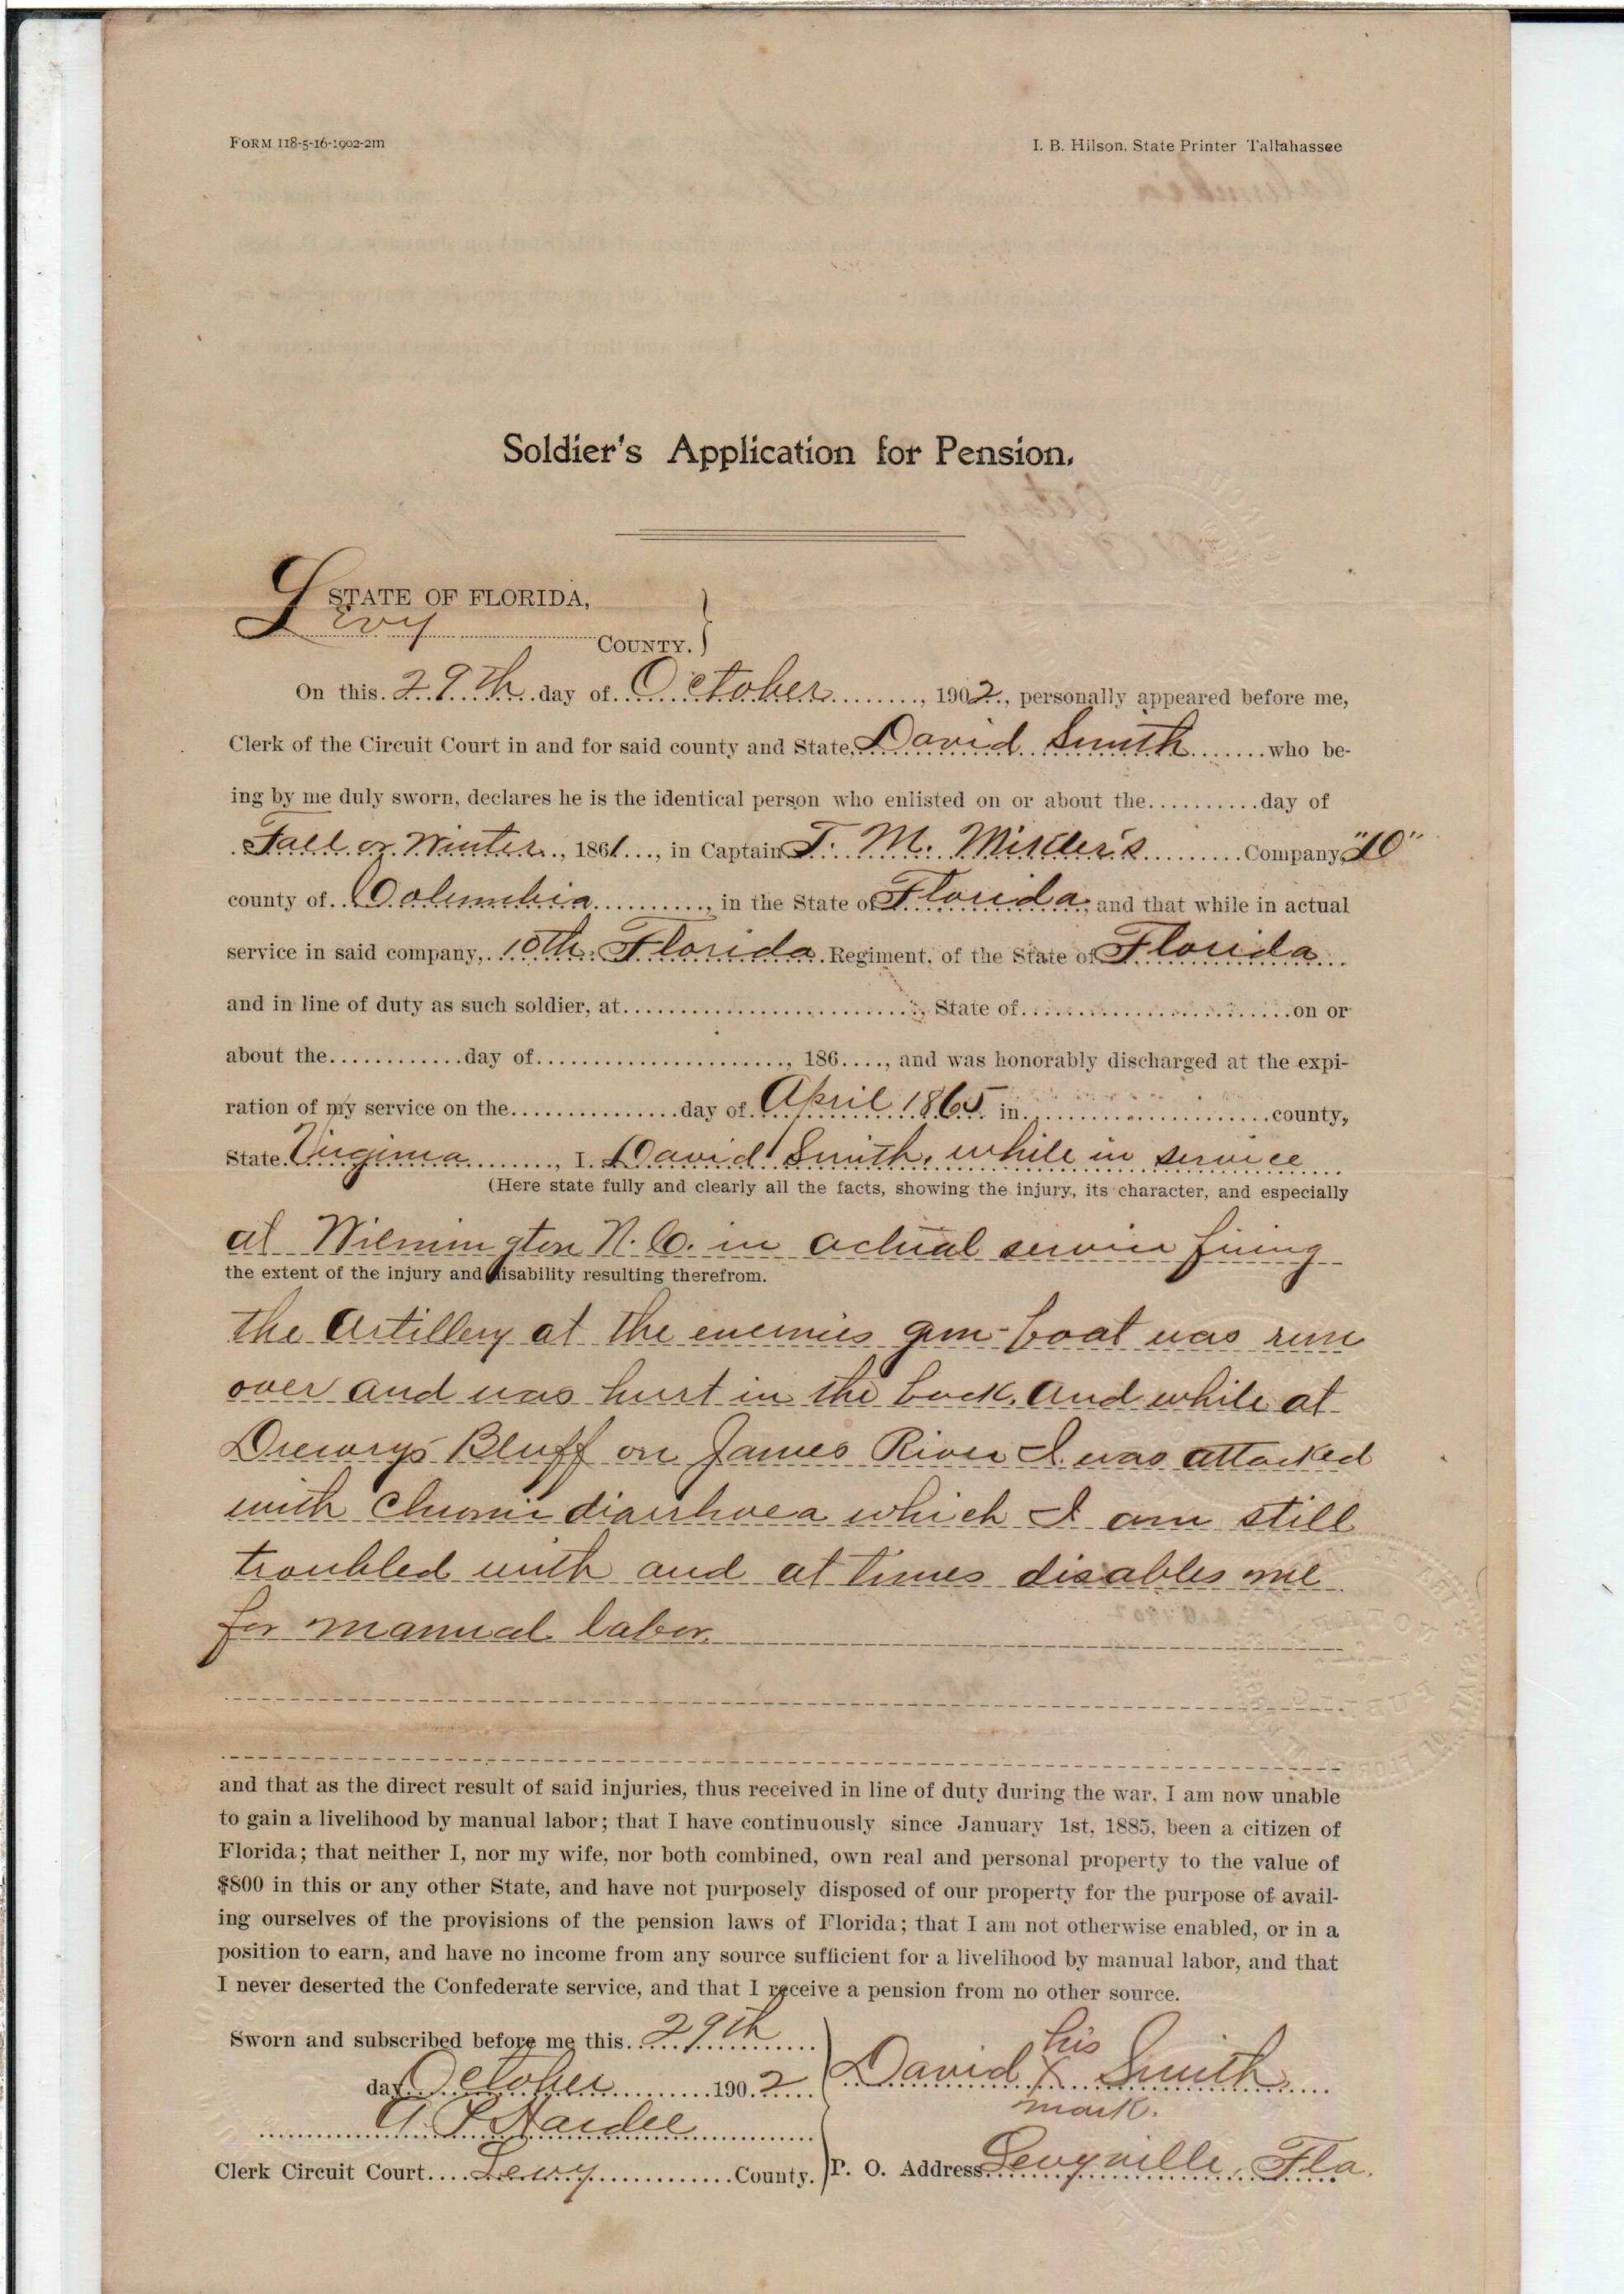 FORM 118-5-16-1902-2m
I. B. Hilson, State Printer Tallahassee
Soldier's Application for Pension.
STATE OF FLORIDA,
Levy COUNTY.
On this 29th day of October, 1902, personally appeared before me,
Clerk of the Circuit Court in and for said county and State, David Smith who be-
ing by me duly sworn, declares he is the identical person who enlisted on or about the...........day of
Fall or Winter, 1861..., in Captain T. M. Company
county of Columbia, in the State of Florida, and that while in actual
service in said company, 10th Florida Regiment, of the State of Florida
and in line of duty as such soldier, at.......................... State of..........................on or
about the............day of......................, 186...., and was honorably discharged at the expi-
ration of my service on the................day of April 1865 in........................county,
State Virginia, I. David Smith, while in service
(Here state fully and clearly all the facts, showing the injury, its character, and especially
at Wilmington N. C. in actual service firing
the extent of the injury and disability resulting therefrom.
the Artillery at the enemies gun-boat was run
over and was hurt in the back, and while at
Drewrys Bluff on James River I was attacked
with Chronic diarrhoea which I am still
troubled with and at times disables me
for manual labor.
and that as the direct result of said injuries, thus received in line of duty during the war, I am now unable
to gain a livelihood by manual labor; that I have continuously since January 1st, 1885, been a citizen of
Florida; that neither I, nor my wife, nor both combined, own real and personal property to the value of
$800 in this or any other State, and have not purposely disposed of our property for the purpose of avail-
ing ourselves of the provisions of the pension laws of Florida; that I am not otherwise enabled, or in a
position to earn, and have no income from any source sufficient for a livelihood by manual labor, and that
I never deserted the Confederate service, and that I receive a pension from no other source.
Sworn and subscribed before me this 29th
day October 1902
his
David X Smith
mark.
Hardee
Clerk Circuit Court Levy County.
P. O. Address Levyville, Fla.